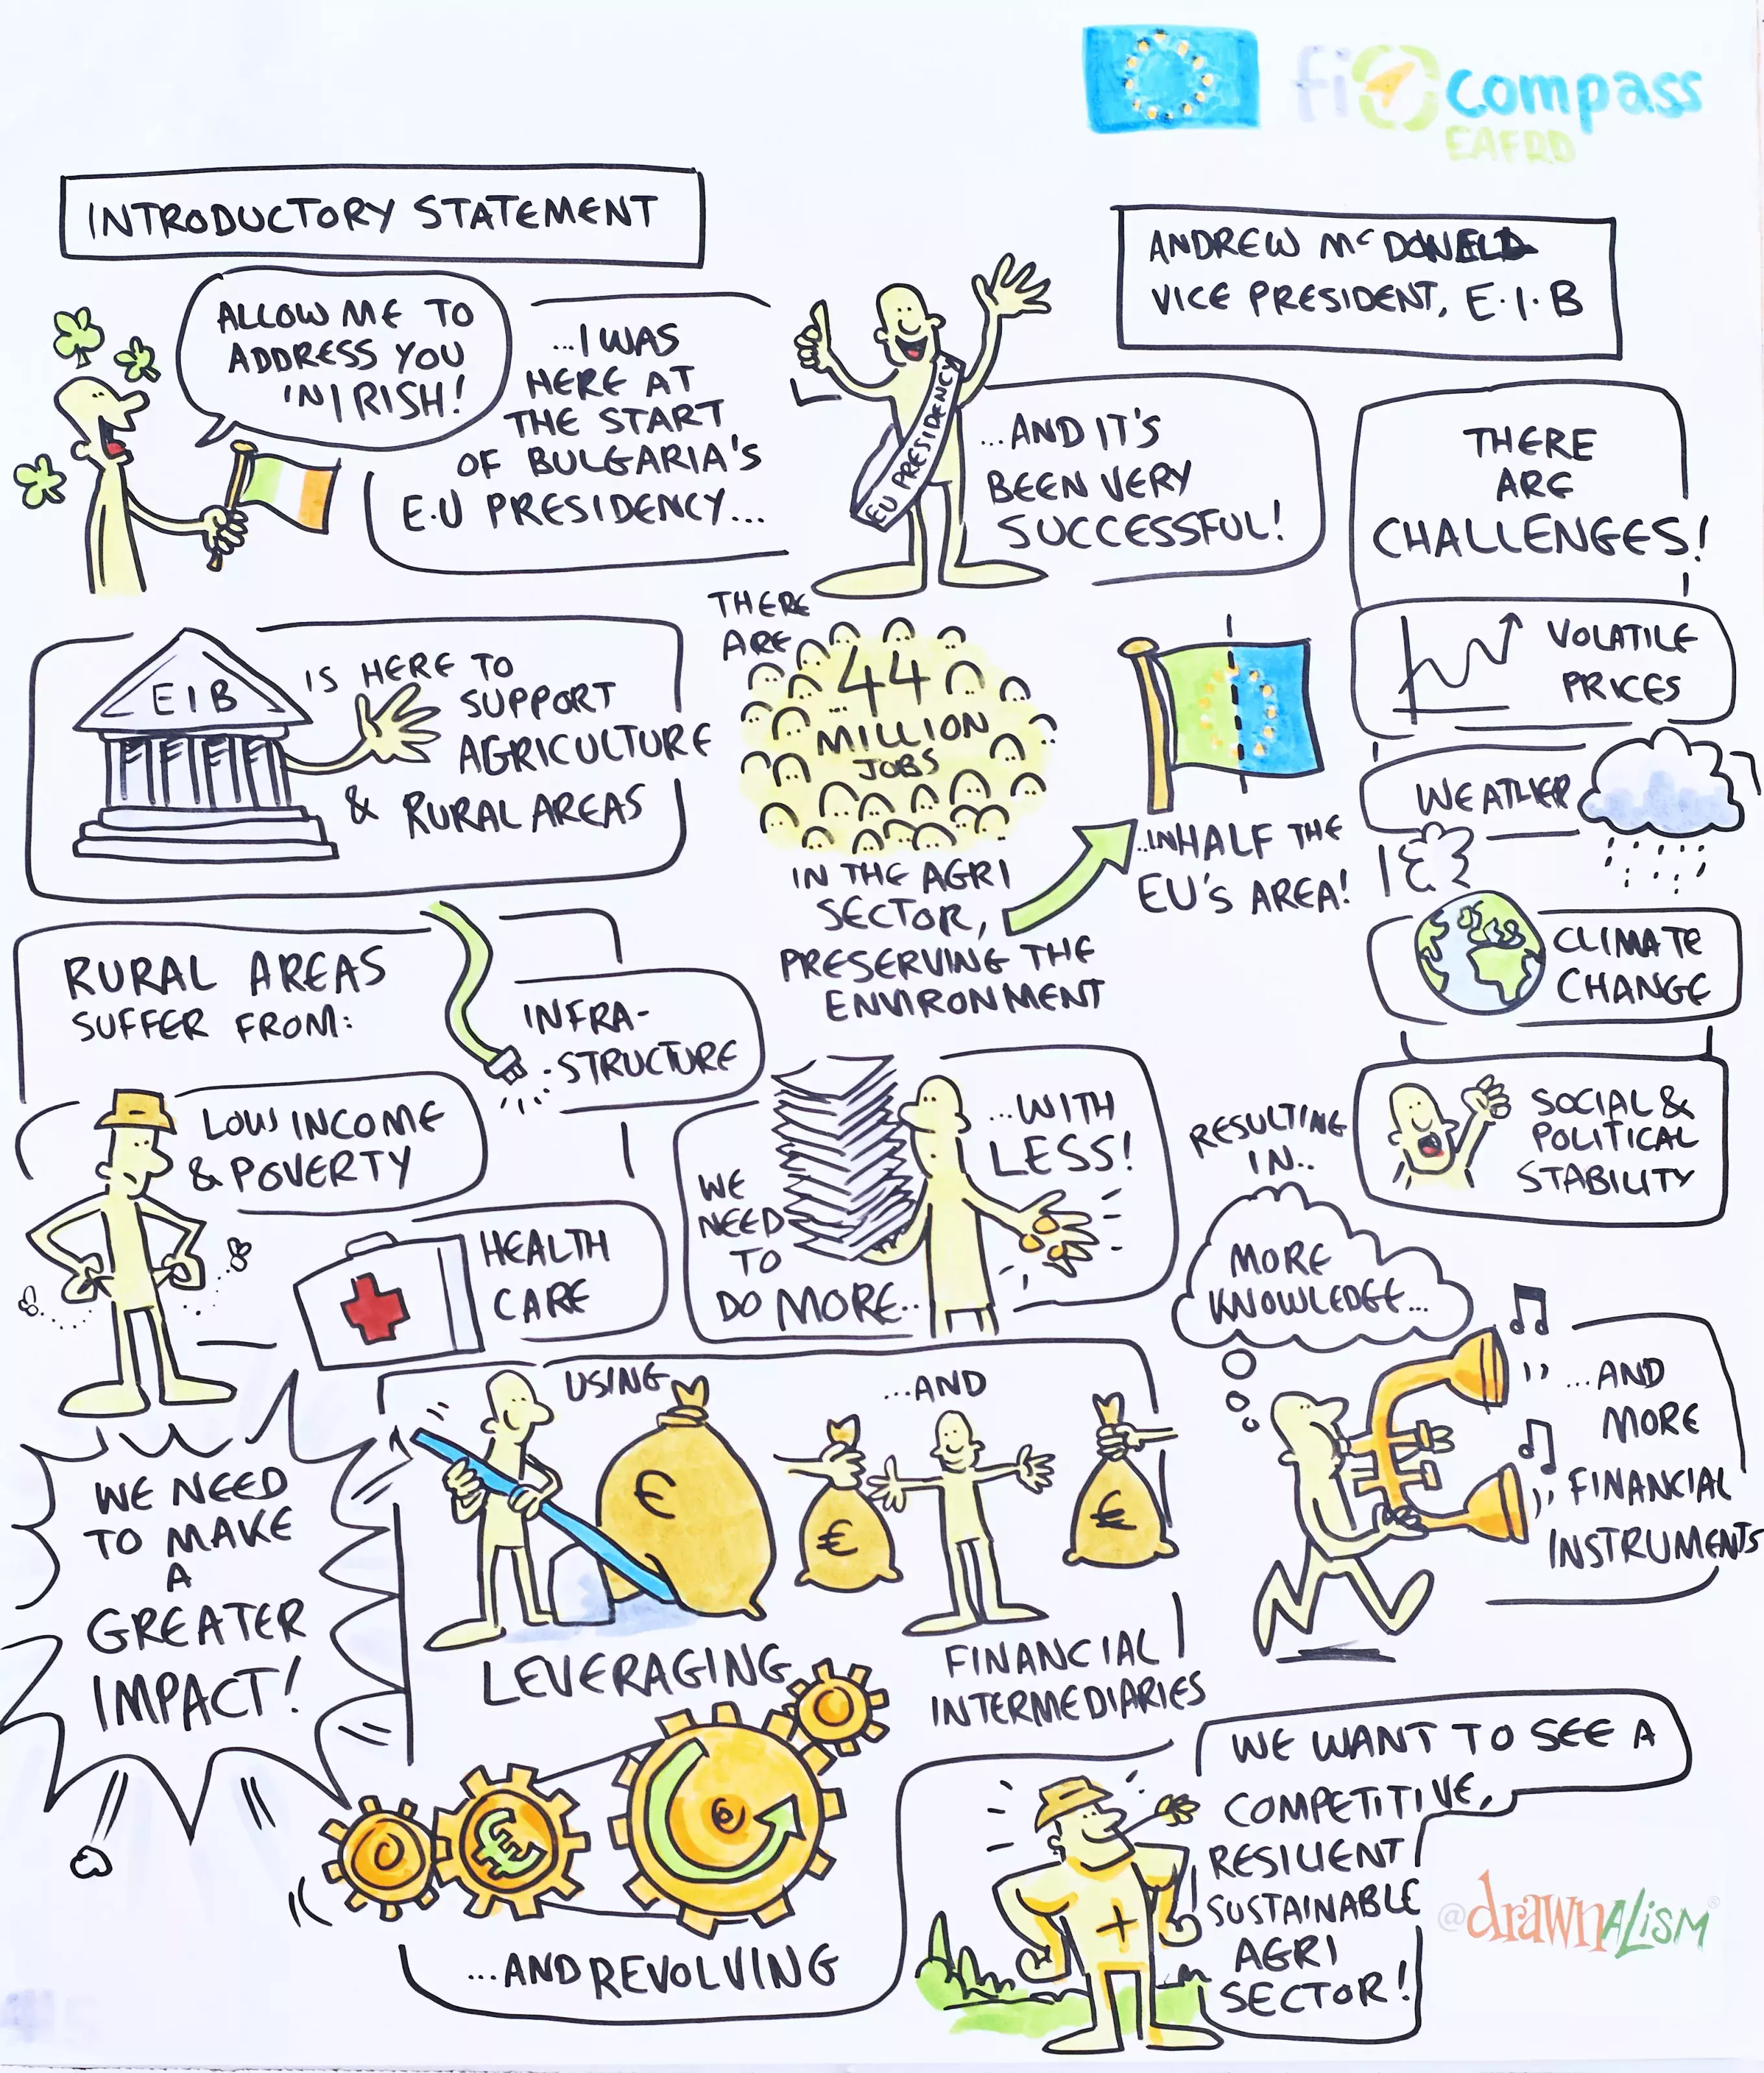 fi compass
EAFRD
INTRODUCTORY STATEMENT
ANDREW McDONELD
VICE PRESIDENT, E.I.B
ALLOW ME TO
ADDRESS YOU
IN IRISH!
...I WAS
HERE AT
THE START
OF BULGARIA'S
E.U PRESIDENCY...
EU PRESIDENCY
...AND IT'S
BEEN VERY
SUCCESSFUL!
THERE
ARE
CHALLENGES!
VOLATILE
PRICES
WEATHER
CLIMATE
CHANGE
SOCIAL &
POLITICAL
STABILITY
EIB
IS HERE TO
SUPPORT
AGRICULTURE
& RURAL AREAS
THERE
ARE
44
MILLION
JOBS
IN THE AGRI
SECTOR,
PRESERVING THE
ENVIRONMENT
...IN HALF THE
EU'S AREA!
RURAL AREAS
SUFFER FROM:
INFRA-
STRUCTURE
LOW INCOME
& POVERTY
HEALTH
CARE
WE
NEED
TO
DO MORE..
...WITH
LESS!
RESULTING
IN..
MORE
KNOWLEDGE...
...AND
MORE
FINANCIAL
INSTRUMENTS
WE NEED
TO MAKE
A
GREATER
IMPACT!
USING
€
LEVERAGING
...AND
€
€
FINANCIAL
INTERMEDIARIES
€
...AND REVOLVING
WE WANT TO SEE A
COMPETITIVE,
RESILIENT
SUSTAINABLE
AGRI
SECTOR!
@drawnALiSM®